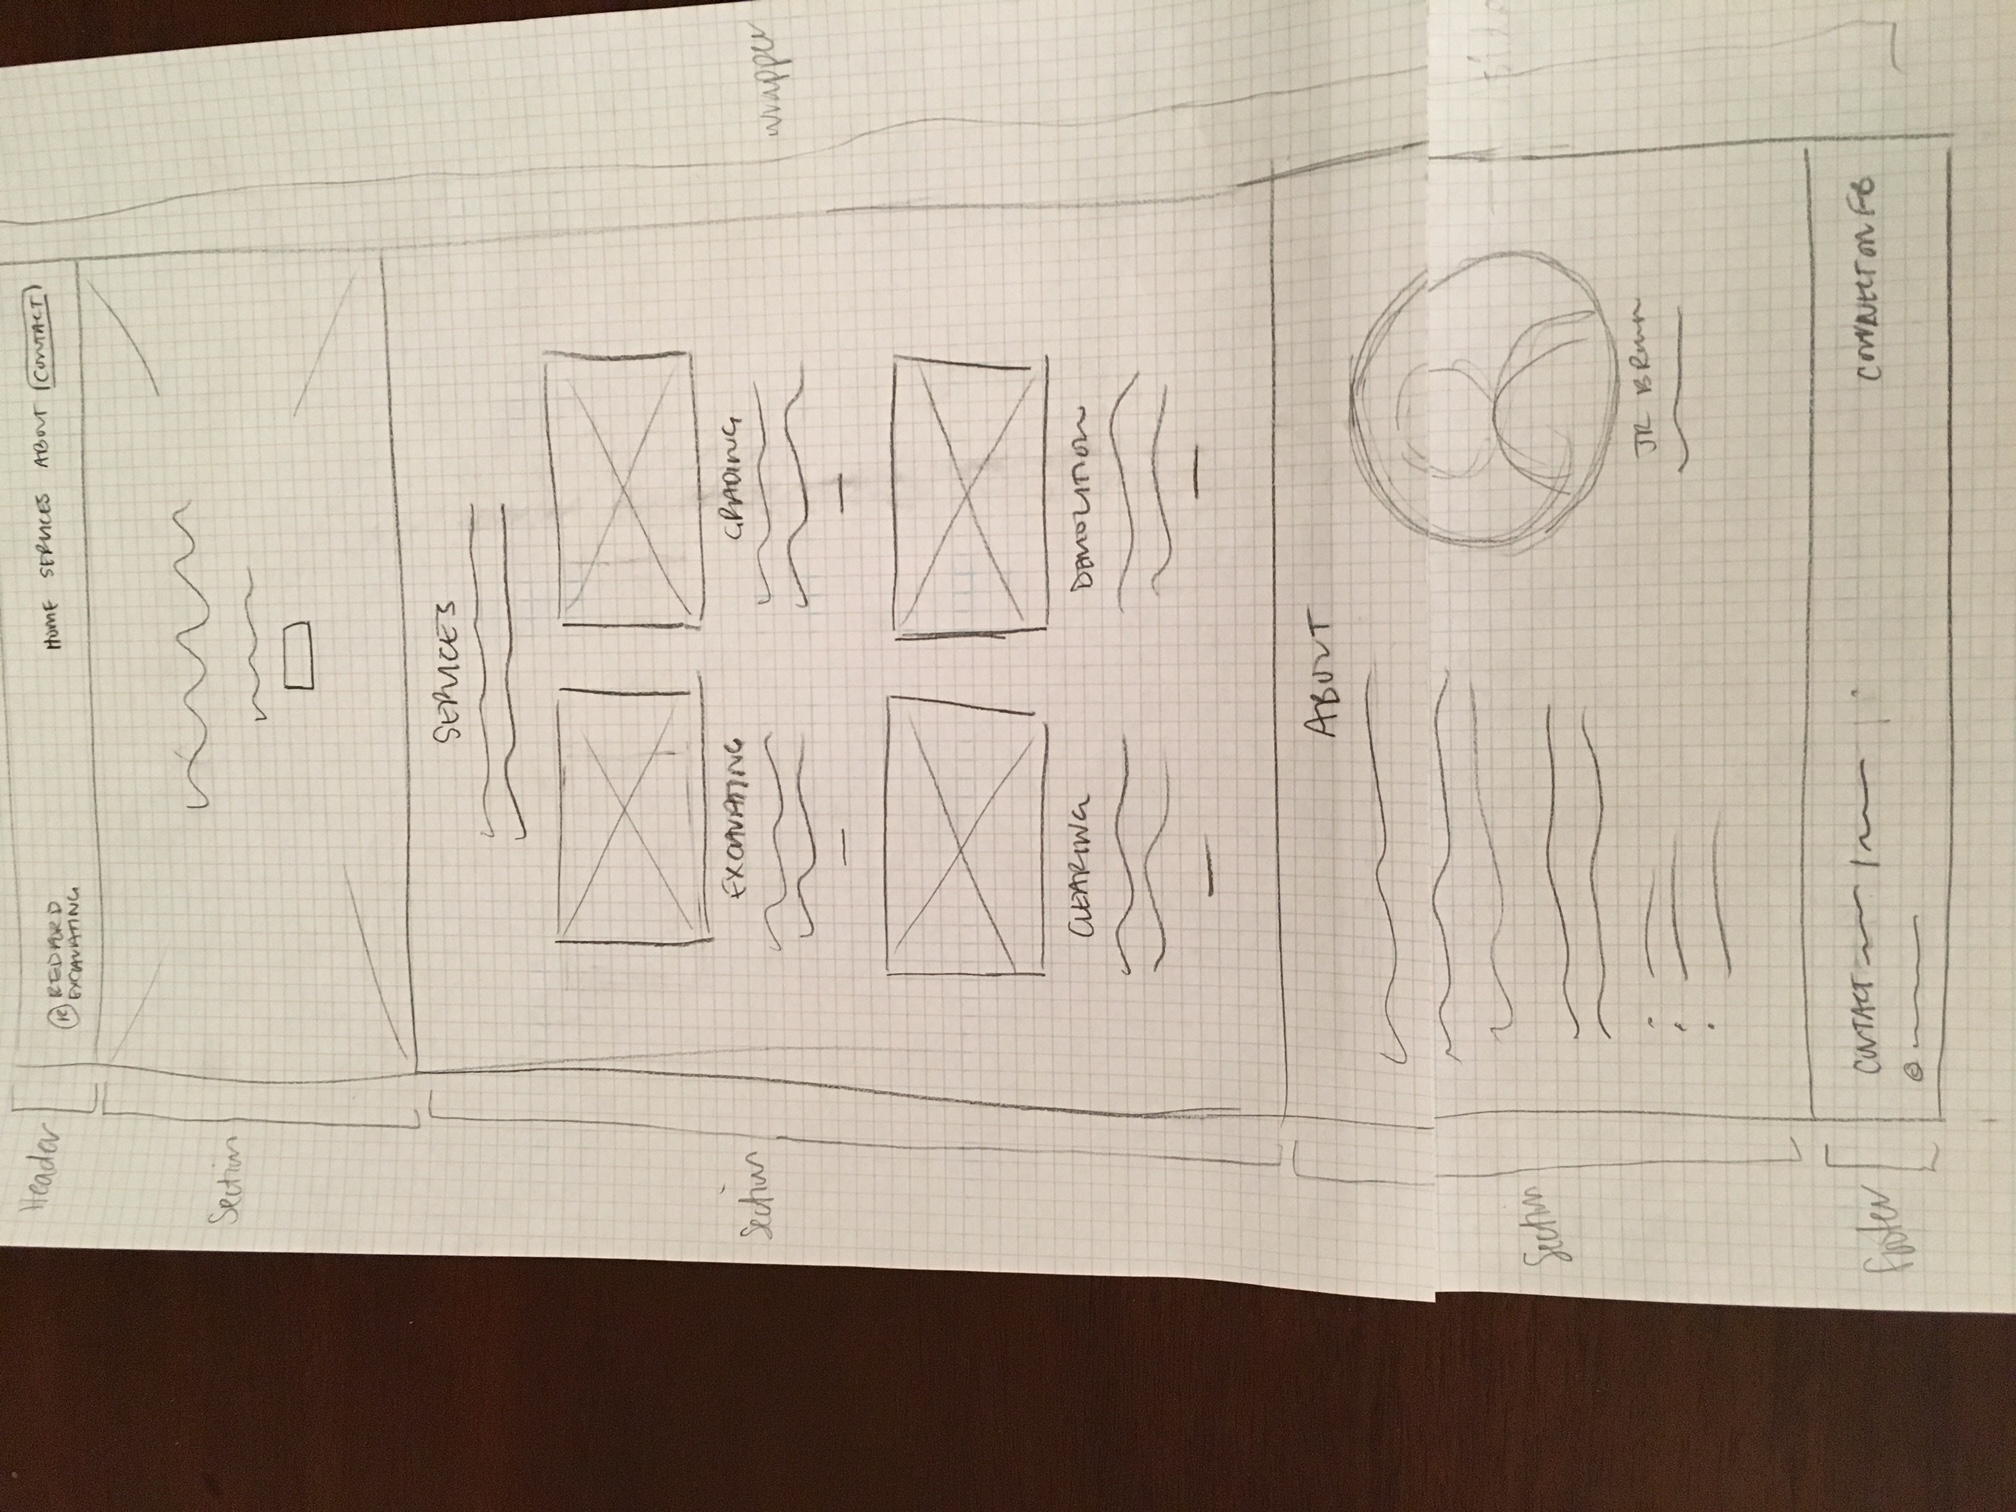 Header
R REDFORD
EXCAVATING
HOME SERVICES ABOUT CONTACT
Section
SERVICES
Section
EXCAVATING GRADING
wrapper
CLEARING DEMOLITION
ABOUT
Section
JR BROWN
Footer
CONTACT
CONNECT ON FB
©